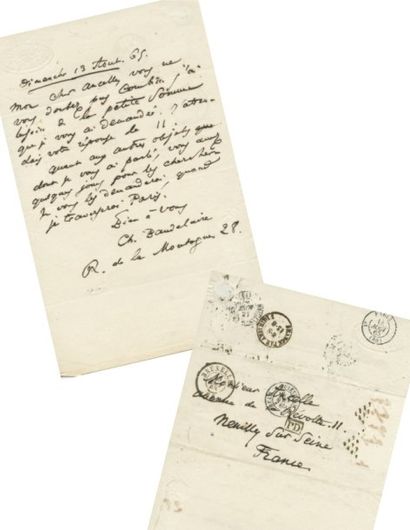 Dimanche 13 Aout. 65.
Mon cher Ancelle, vous ne
vous doutez pas combien j'ai
besoin de la petite somme
que je vous ai demandée. J'atten-
dais votre réponse le 11.
quant aux autres objets que
dont je vous ai parlé, vous avez
quelques jours pour les chercher.
Je vous les demanderai quand
je traverserai Paris.
Bien à vous
Ch. Baudelaire
R. de la Montagne 28.
BRUXELLES
Monsieur Ancelle
chemin de Révolte. 11.
PD
Neuilly sur Seine
France